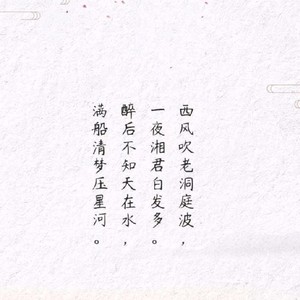 西风吹老洞庭波，
一夜湘君白发多。
醉后不知天在水，
满船清梦压星河。